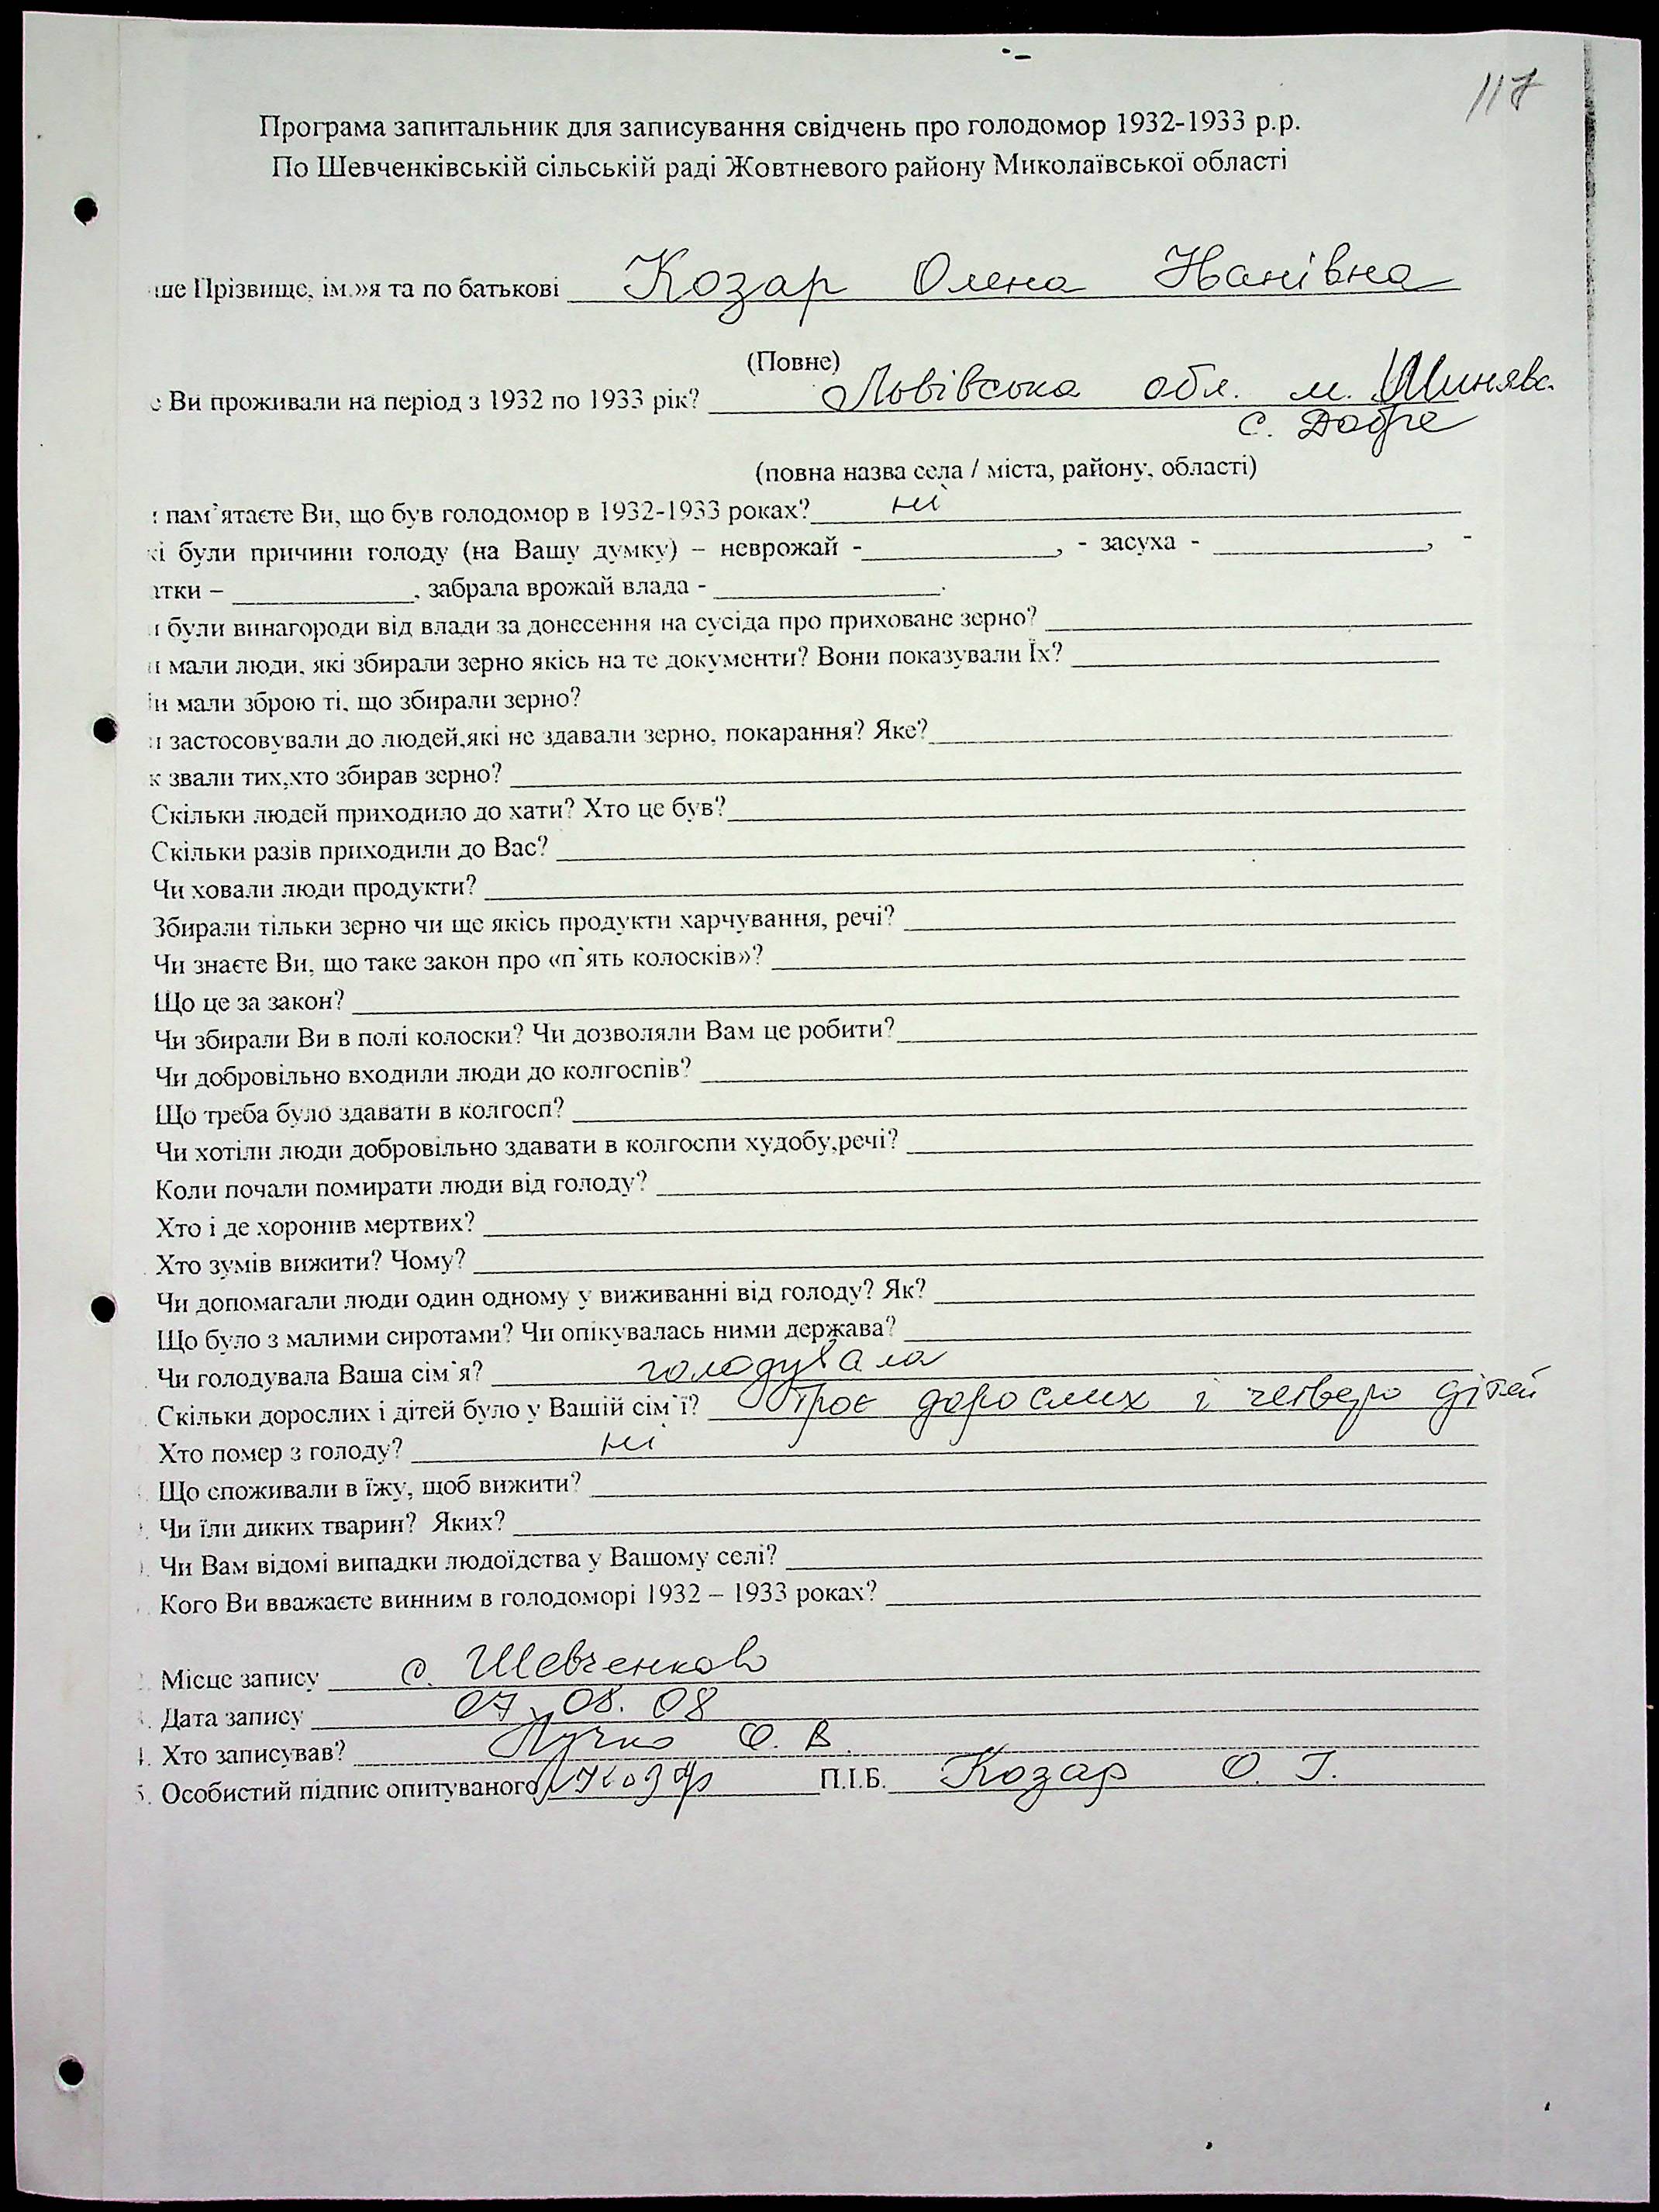 117
Програма запитальник для записування свідчень про голодомор 1932-1933 р.р.
По Шевченківській сільській раді Жовтневого району Миколаївської області
ше Прізвище, ім.»я та по батькові Козар Олена Іванівна
(Повне)
е Ви проживали на період з 1932 по 1933 рік? Львівська обл. м. Шинява
с. Добре
(повна назва села / міста, району, області)
и пам'ятаєте Ви, що був голодомор в 1932-1933 роках? ні
кі були причини голоду (на Вашу думку) – неврожай - , - засуха - , -
атки – , забрала врожай влада - .
и були винагороди від влади за донесення на сусіда про приховане зерно?
и мали люди, які збирали зерно якісь на те документи? Вони показували Їх?
и мали зброю ті, що збирали зерно?
и застосовували до людей,які не здавали зерно, покарання? Яке?
к звали тих,хто збирав зерно?
Скільки людей приходило до хати? Хто це був?
Скільки разів приходили до Вас?
Чи ховали люди продукти?
Збирали тільки зерно чи ще якісь продукти харчування, речі?
Чи знаєте Ви, що таке закон про «п`ять колосків»?
Що це за закон?
Чи збирали Ви в полі колоски? Чи дозволяли Вам це робити?
Чи добровільно входили люди до колгоспів?
Що треба було здавати в колгосп?
Чи хотіли люди добровільно здавати в колгоспи худобу,речі?
Коли почали помирати люди від голоду?
Хто і де хоронив мертвих?
Хто зумів вижити? Чому?
Чи допомагали люди один одному у виживанні від голоду? Як?
Що було з малими сиротами? Чи опікувалась ними держава?
Чи голодувала Ваша сім`я? голодувала
Скільки дорослих і дітей було у Вашій сім`ї? троє дорослих і четверо дітей
Хто помер з голоду? ні
Що споживали в їжу, щоб вижити?
Чи їли диких тварин? Яких?
Чи Вам відомі випадки людоїдства у Вашому селі?
Кого Ви вважаєте винним в голодоморі 1932 – 1933 роках?
Місце запису с. Шевченково
Дата запису 07. 08. 08
Хто записував? Лучко О. В.
5. Особистий підпис опитуваного Козар П.І.Б. Козар О. І.